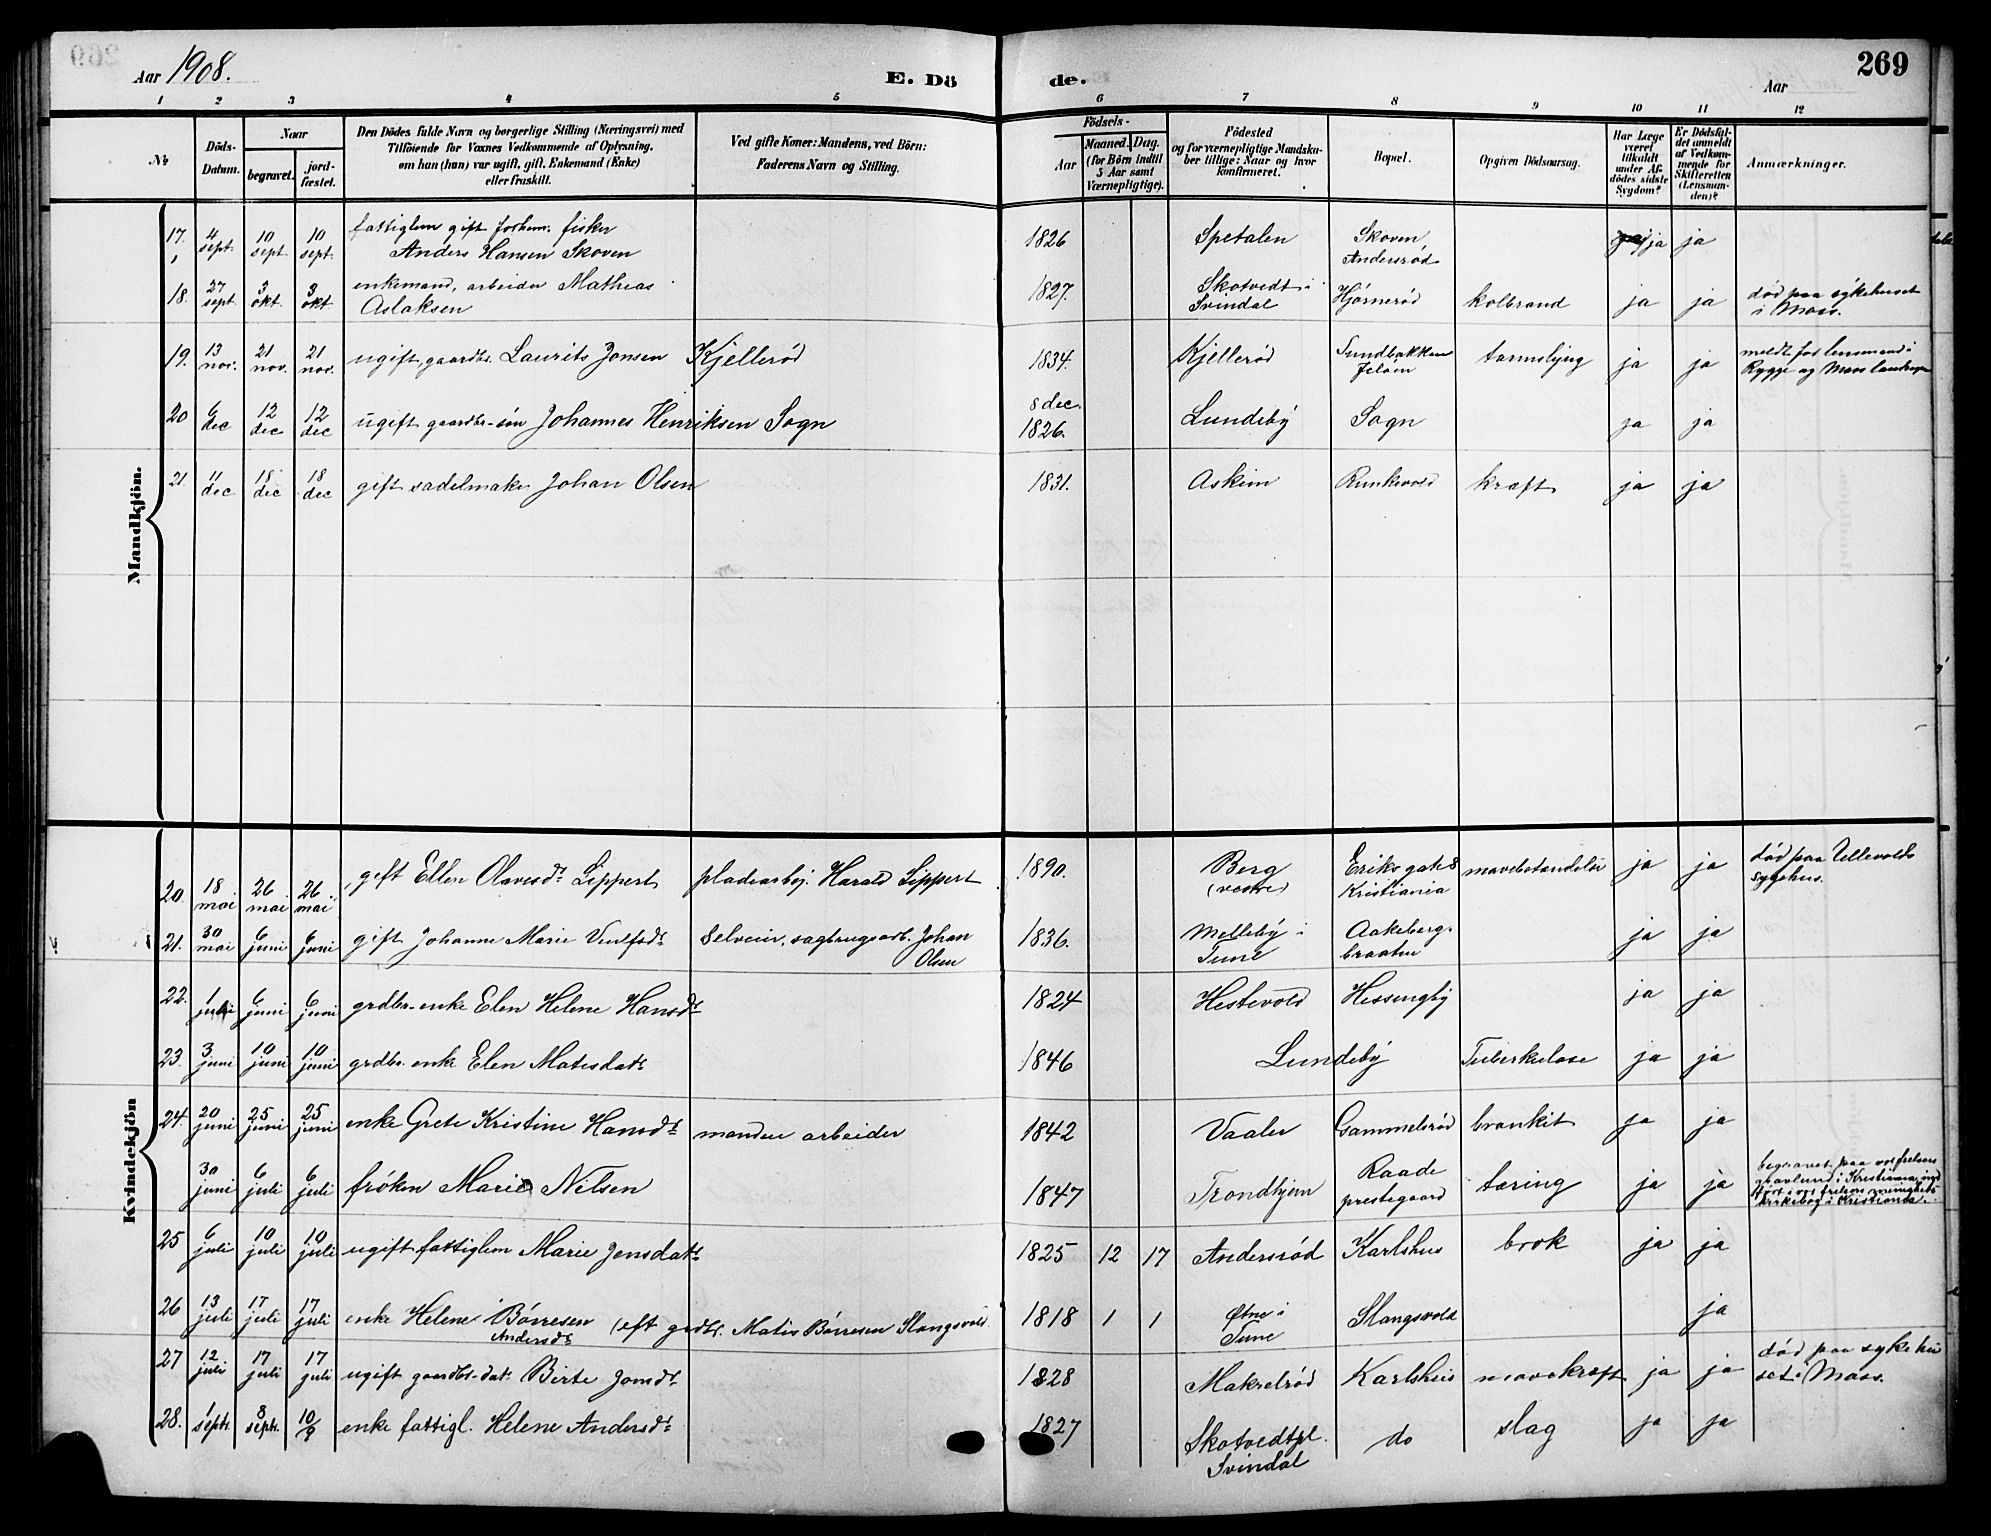 269
Aar 1908.
E. Döde.
Aar
1 2 3 4 5 6 7 8 9 10 11 12
No
Döds-Datum.
Naar
begravet.
jord-fæstet.
Den Dödes fulde Navn og borgerlige Stilling (Næringsvei) med
Tilföiende for Voxnes Vedkommende af Oplysning,
om han (hun) var ugift, gift, Enkemand (Enke)
eller fraskilt.
Ved gifte Koner: Mandens, ved Börn:
Faderens Navn og Stilling.
Födsels-
Aar
Maaned. Dag.
(for Börn indtil
5 Aar samt
Værnepligtige).
Födested
og for værnepligtige Mandska-
ber tillige: Naar og hvor
konfirmeret.
Bopæl.
Opgiven Dödsaarsag.
Har Læge
været
tilkaldt
under Af-
dödes sidste
Sygdom?
Er Dödsfal-
det anmeldt
af Vedkom-
mende for
Skifteretten
(Lensman-
den)?
Anmærkninger.
Mandkjön.
17. 4 sept. 10 sept. 10 sept. fattiglem gift forhen. fisker Anders Hansen Skoven 1826 Spetalen Skoven Andersrød ja ja
18. 27 sept. 3 okt. 3 okt. enkemand, arbeider Mathias Aslaksen 1827. Skotvedt i Svindal Hjørnerød kolbrand ja ja død paa sykehuset i Moss.
19. 13 nov. 21 nov. 21 nov. ugift, gaardbr. Laurits Jonsen Kjellerød 1834. Kjellerød Sundbakken Feløen tarmslyng ja ja meldt for lensmand i Rygge og Moss landsogn
20 6 dec 12 dec 12 dec ugift gaardbr-søn Johannes Henriksen Sogn 8 dec. 1826. Lundeby Sogn ja ja
21. 11 dec 18 dec 18 dec gift sadelmaker Johan Olsen 1831. Askim Runkevold kræft ja ja
Kvindekjön
20. 18 mai 26 mai 26 mai gift Ellen Olavesdt Lippert pladearbj. Harald Lippert 1890. Berg (vestre) Eriks gate 8 Kristiania mavebetændelse ja ja død paa Ullevolds sygehus.
21. 30 mai 6 juni 6 juni gift Johanne Marie dt Selveier, sagbrugsarb. Johan Olsen 1836. Melleby i Tune Aakeberg-braaten ja ja
22. 1 juni 6 juni 6 juni grdbr-enke Elen Helene Hansdt 1824 Hestevold Hessengby ja ja
23. 3 juni 10 juni 10 juni grdbr. enke Elen Matisdatr 1846 Lundeby Tuberkulose ja ja
24. 20 juni 25 juni 25 juni enke Grete Kristine Hansdt manden arbeider 1842 Vaaler Gammelsrød bronkit ja ja
30 juni 6 juli 6 juli frøken Marie Nilsen 1847 Trondhjem Raade prestegaard tæring ja ja begravet paa vor frelsers gravlund i Kristiania, ind-ført i vor frelsers menigheds kirkebog i Kristiania.
25 6 juli 10 juli 10 juli ugift fattiglem Marie Jensdatr 1825 12 17 Andersrød Karlshus brok ja ja
26 13 juli 17 juli 17 juli enke Helene Børresen Andersdt (eft grdbr. Matis Børresen Slangsvold. 1818 1 1 Øtne i Tune Slangsvold ja
27 12 juli 17 juli 17 juli ugift gaardbr-datr Birte Jonsdt 1828 Makrelrød Karlshus mavekræft ja ja død paa sykehuset i Moss.
28. 1 septr. 8 septr. 10/9 enke fattigl. Helene Andersdt 1827 Skotvedtpl. Svindal do slag ja ja